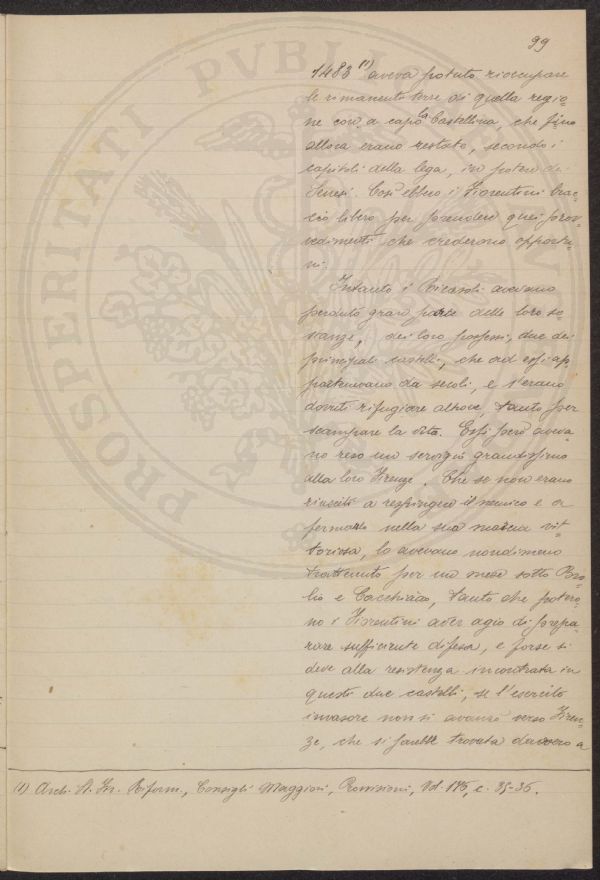 99
1483 (1) aveva potuto rioccupare
le rimanenti terre di quella regio-
ne con a capo la Castellina, che fino
allora erano restate, secondo i
capitoli della lega, in potere de'
Senesi. Così ebbero i Fiorentini brac-
cio libero per prendere quei prov-
vedimenti che crederono opportu-
ni.
Intanto i Ricasoli avevano
perduto gran parte delle loro so
stanze, dei loro possessi, due dei
principali castelli, che ad essi ap-
partenevano da secoli, e s'erano
dovuti rifugiare altrove, tanto per
scampare la vita. Essi però aveva-
no reso un servigio grandissimo
alla loro Firenze. Che se non erano
riusciti a respingere il nemico e a
fermarlo nella sua marcia vit-
toriosa, lo avevano nondimeno
trattenuto per un mese sotto Bro-
lio e Cacchiano, tanto che potero-
no i Fiorentini aver agio di prepa-
rare sufficiente difesa, e forse si
deve alla resistenza incontrata in
questi due castelli, se l'esercito
invasore non si avanzò verso Firen-
ze, che si sarebbe trovata davvero a
(1) Arch. St. Fir. Riform., Consigli Maggiori, Provvisioni, Vol. 175, c. 35-36.
PROSPERITATI PVBLI